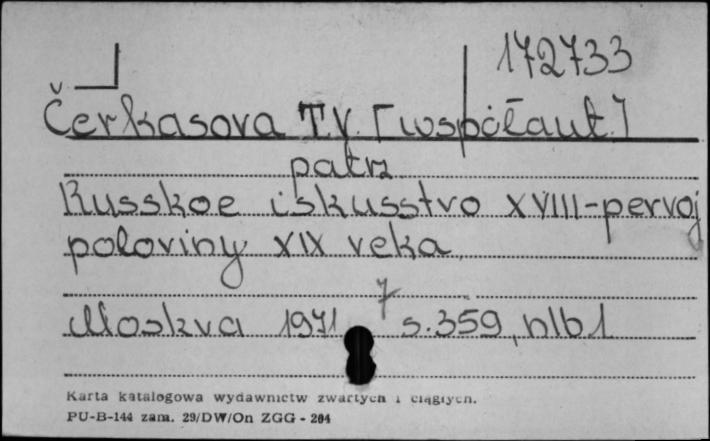 172733
Čerkasova T.V. [współaut.]
patrz
Russkoe iskusstvo XVIII-pervoj
poloviny XIX veka
7
Moskva 1971 s. 359, nlb 1
Karta katalogowa wydawnictw zwartych i ciągłych.
PU-B-144 zam. 29/DW/On ZGG - 204